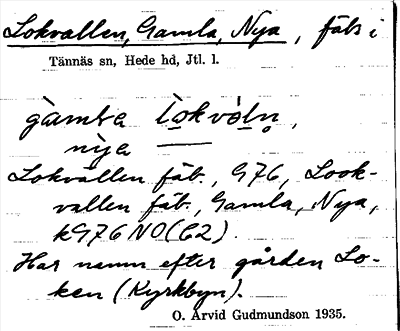 Lokvallen, Gamla, Nya, fäb i
Tännäs sn, Hede hd, Jtl. l.
gàmḷa lòkvàḷn,
nìja —
Lokvallen fäb., G76, Look-
vallen fäb., Gamla, Nya,
kG76NO(C2).
Har namn efter gården Lo-
ken (Kyrkbyn).
O. Arvid Gudmundson 1935.